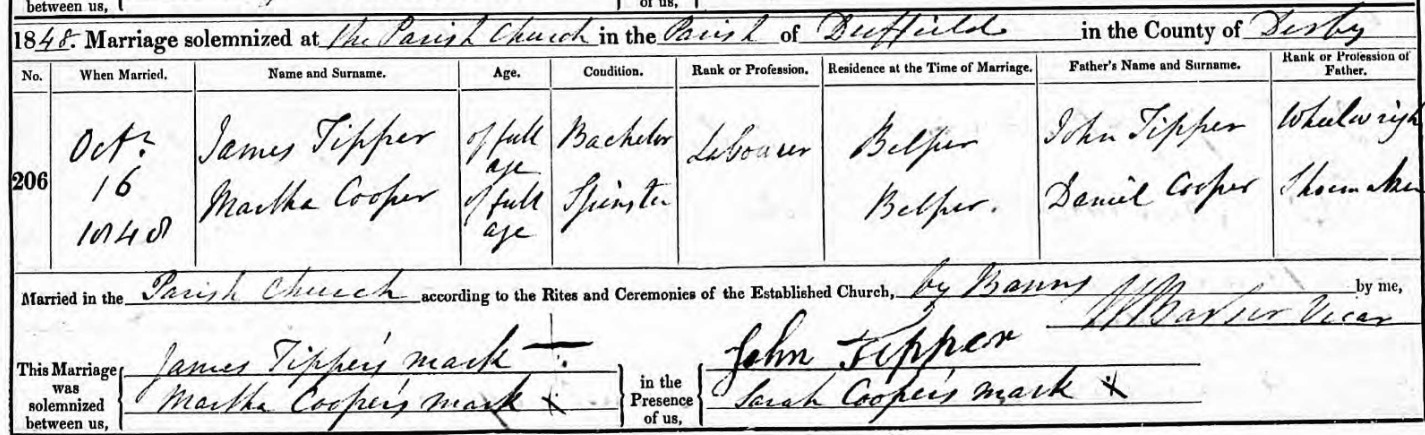 between us, of us,
1848. Marriage solemnized at the Parish Church in the Parish of Duffield in the County of Derby
No. When Married. Name and Surname. Age. Condition. Rank or Profession. Residence at the Time of Marriage. Father's Name and Surname. Rank or Profession of Father.
206 Octr. 16 1848
James Tipper of full age Bachelor Labourer Belper John Tipper Wheelwrigh
Martha Cooper of full age Spinster Belper. Daniel Cooper Shoemaker
Married in the Parish Church according to the Rites and Ceremonies of the Established Church, by Banns by me,
Barber Vicar
This Marriage was solemnized between us,
James Tipper's mark
Martha Cooper's mark x
in the Presence of us,
John Tipper
Sarah Cooper's mark x